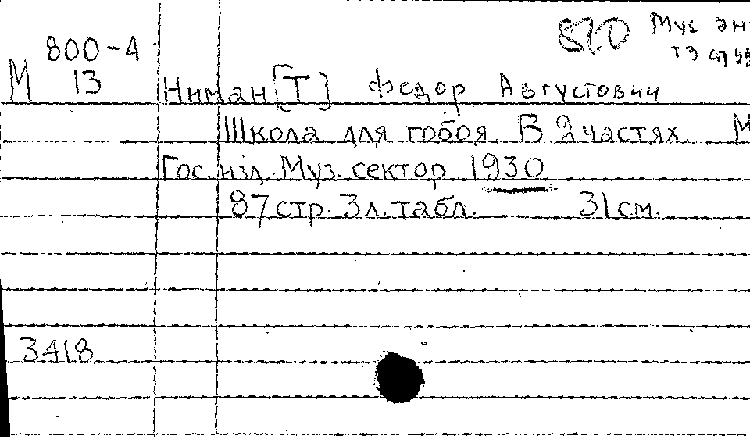 800-4
М 13
Муз эн
Ниман [Т] Федор Августович
Школа для гобоя. В 2 частях. М
Гос. изд. Муз. сектор 1930
87 стр. 3 л. табл. 31 см.
3418